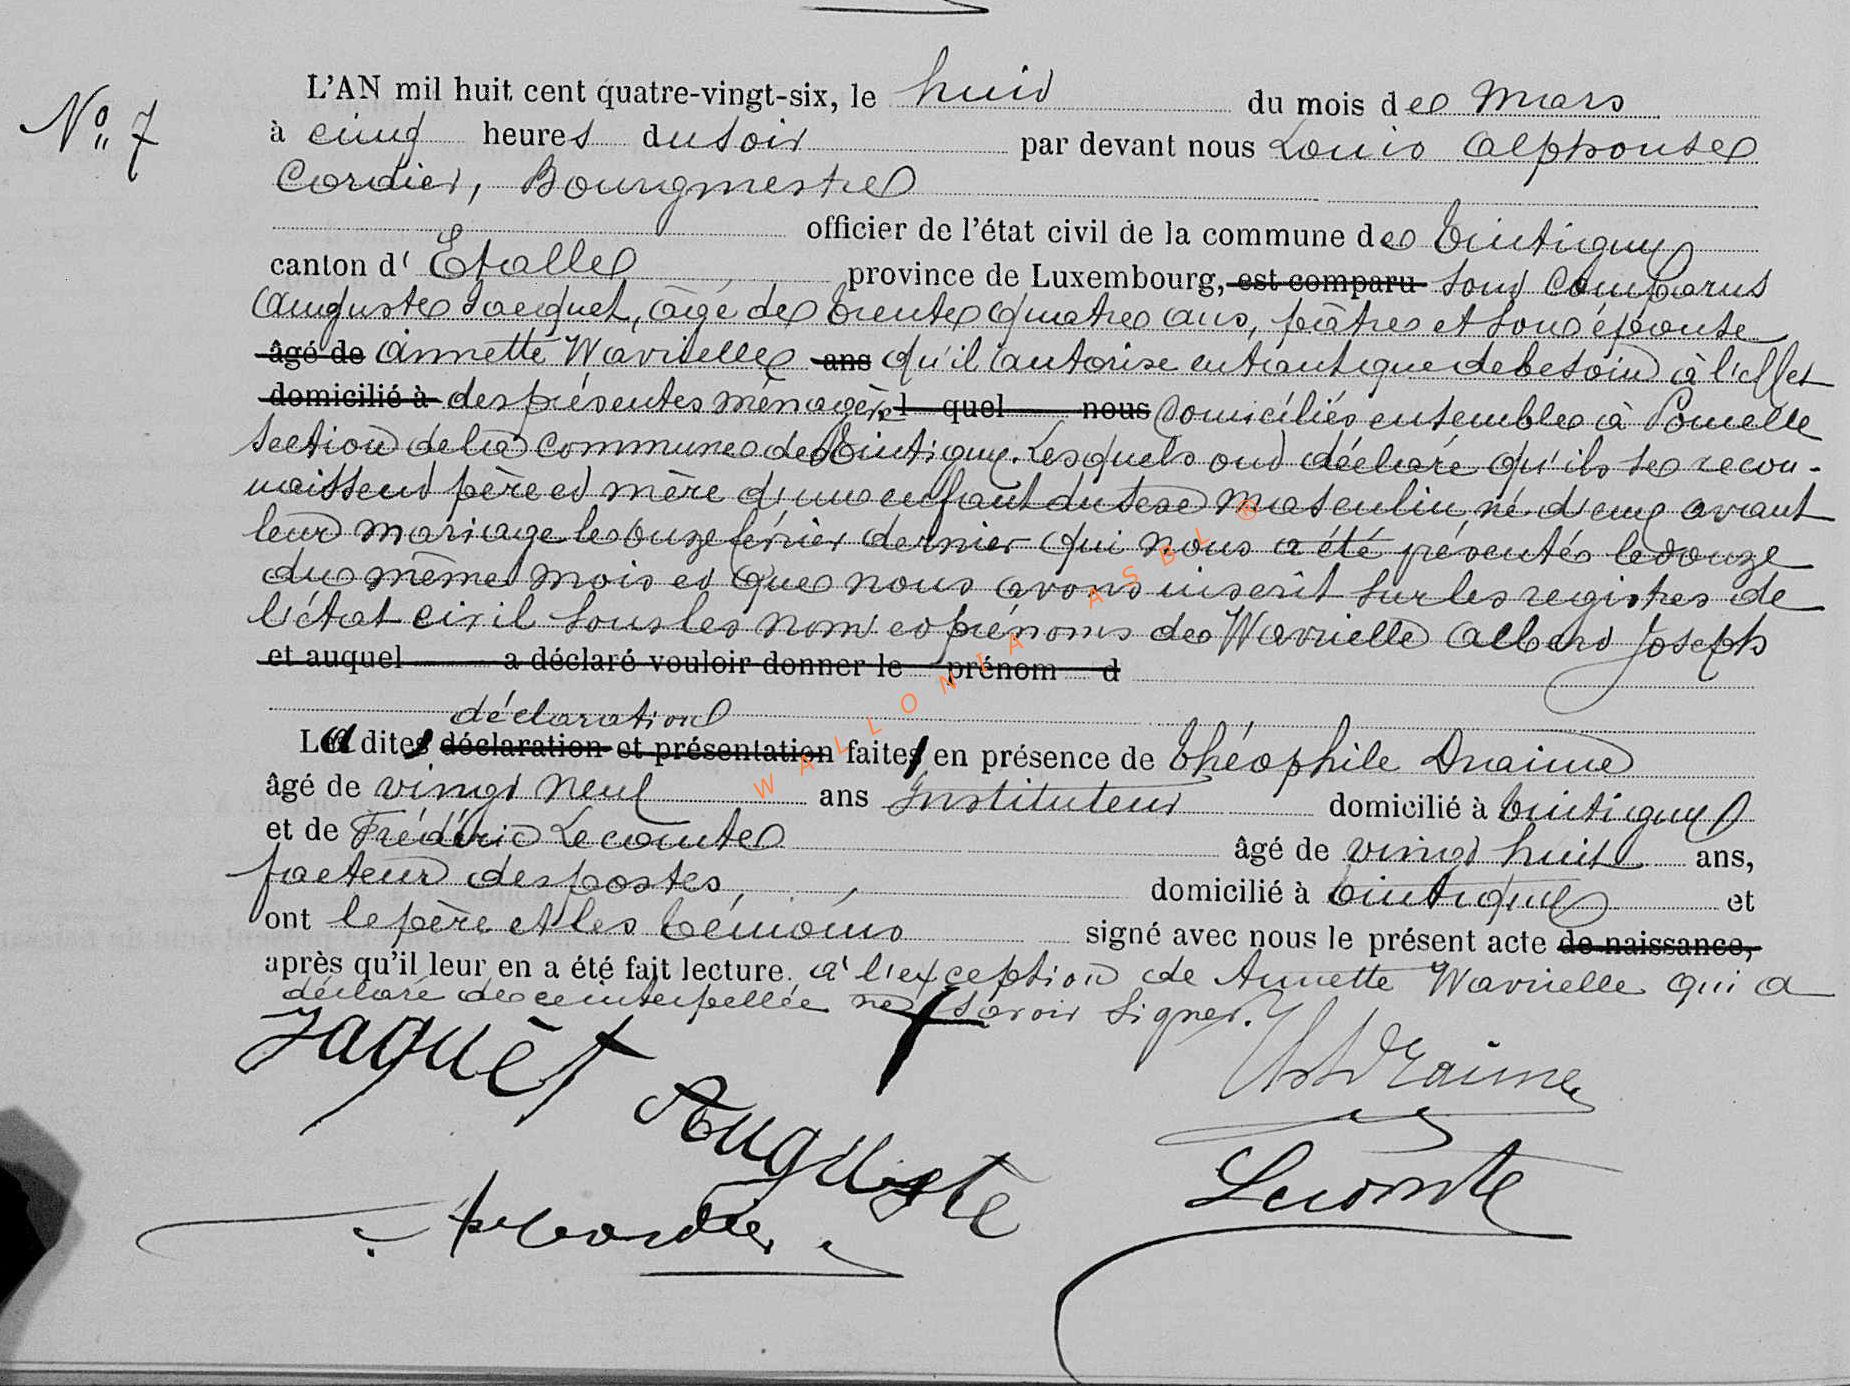 N° 7
L'AN mil huit cent quatre-vingt-six, le huit du mois de Mars
à cinq heures du soir par devant nous Louis Alphonse
Cordier, Bourgmestre
officier de l'état civil de la commune de Tintigny
canton d' Etalle province de Luxembourg, est comparu sont comparus
Auguste Jacquet, âgé de trente quatre ans, pâtre et son épouse
âgé de Annette Wavrielle ans qu'il autorise en tant que de besoin à l'effet
domicilié à des présentes ménagère, l quel nous domiciliés ensemble à Poncelle
section de la commune de Tintigny. Lesquels ont déclaré qu'ils se recon-
naissent père et mère d'un enfant du sexe Masculin, né d'eux avant
leur mariage le onze février dernier qui nous a été présenté le douze
du même mois et que nous avons inscrit sur les registres de
l'état civil sous les nom et prénoms de Wavrielle Albert Joseph
et auquel a déclaré vouloir donner le prénom d
déclaration
La dite déclaration et présentation faite en présence de Théophile Draime
âgé de vingt neuf ans Instituteur domicilié à Tintigny
et de Frédéric Lecomte âgé de vingt huit ans,
facteur des postes, domicilié à Tintigny et
ont le père et les témoins signé avec nous le présent acte de naissance,
après qu'il leur en a été fait lecture. à l'exception de Annette Wavrielle qui a
déclaré de ce interpellée ne savoir signer.
Jaquet Auguste
Draime
Lecomte
Cordier
WALLONIA ASBL ®